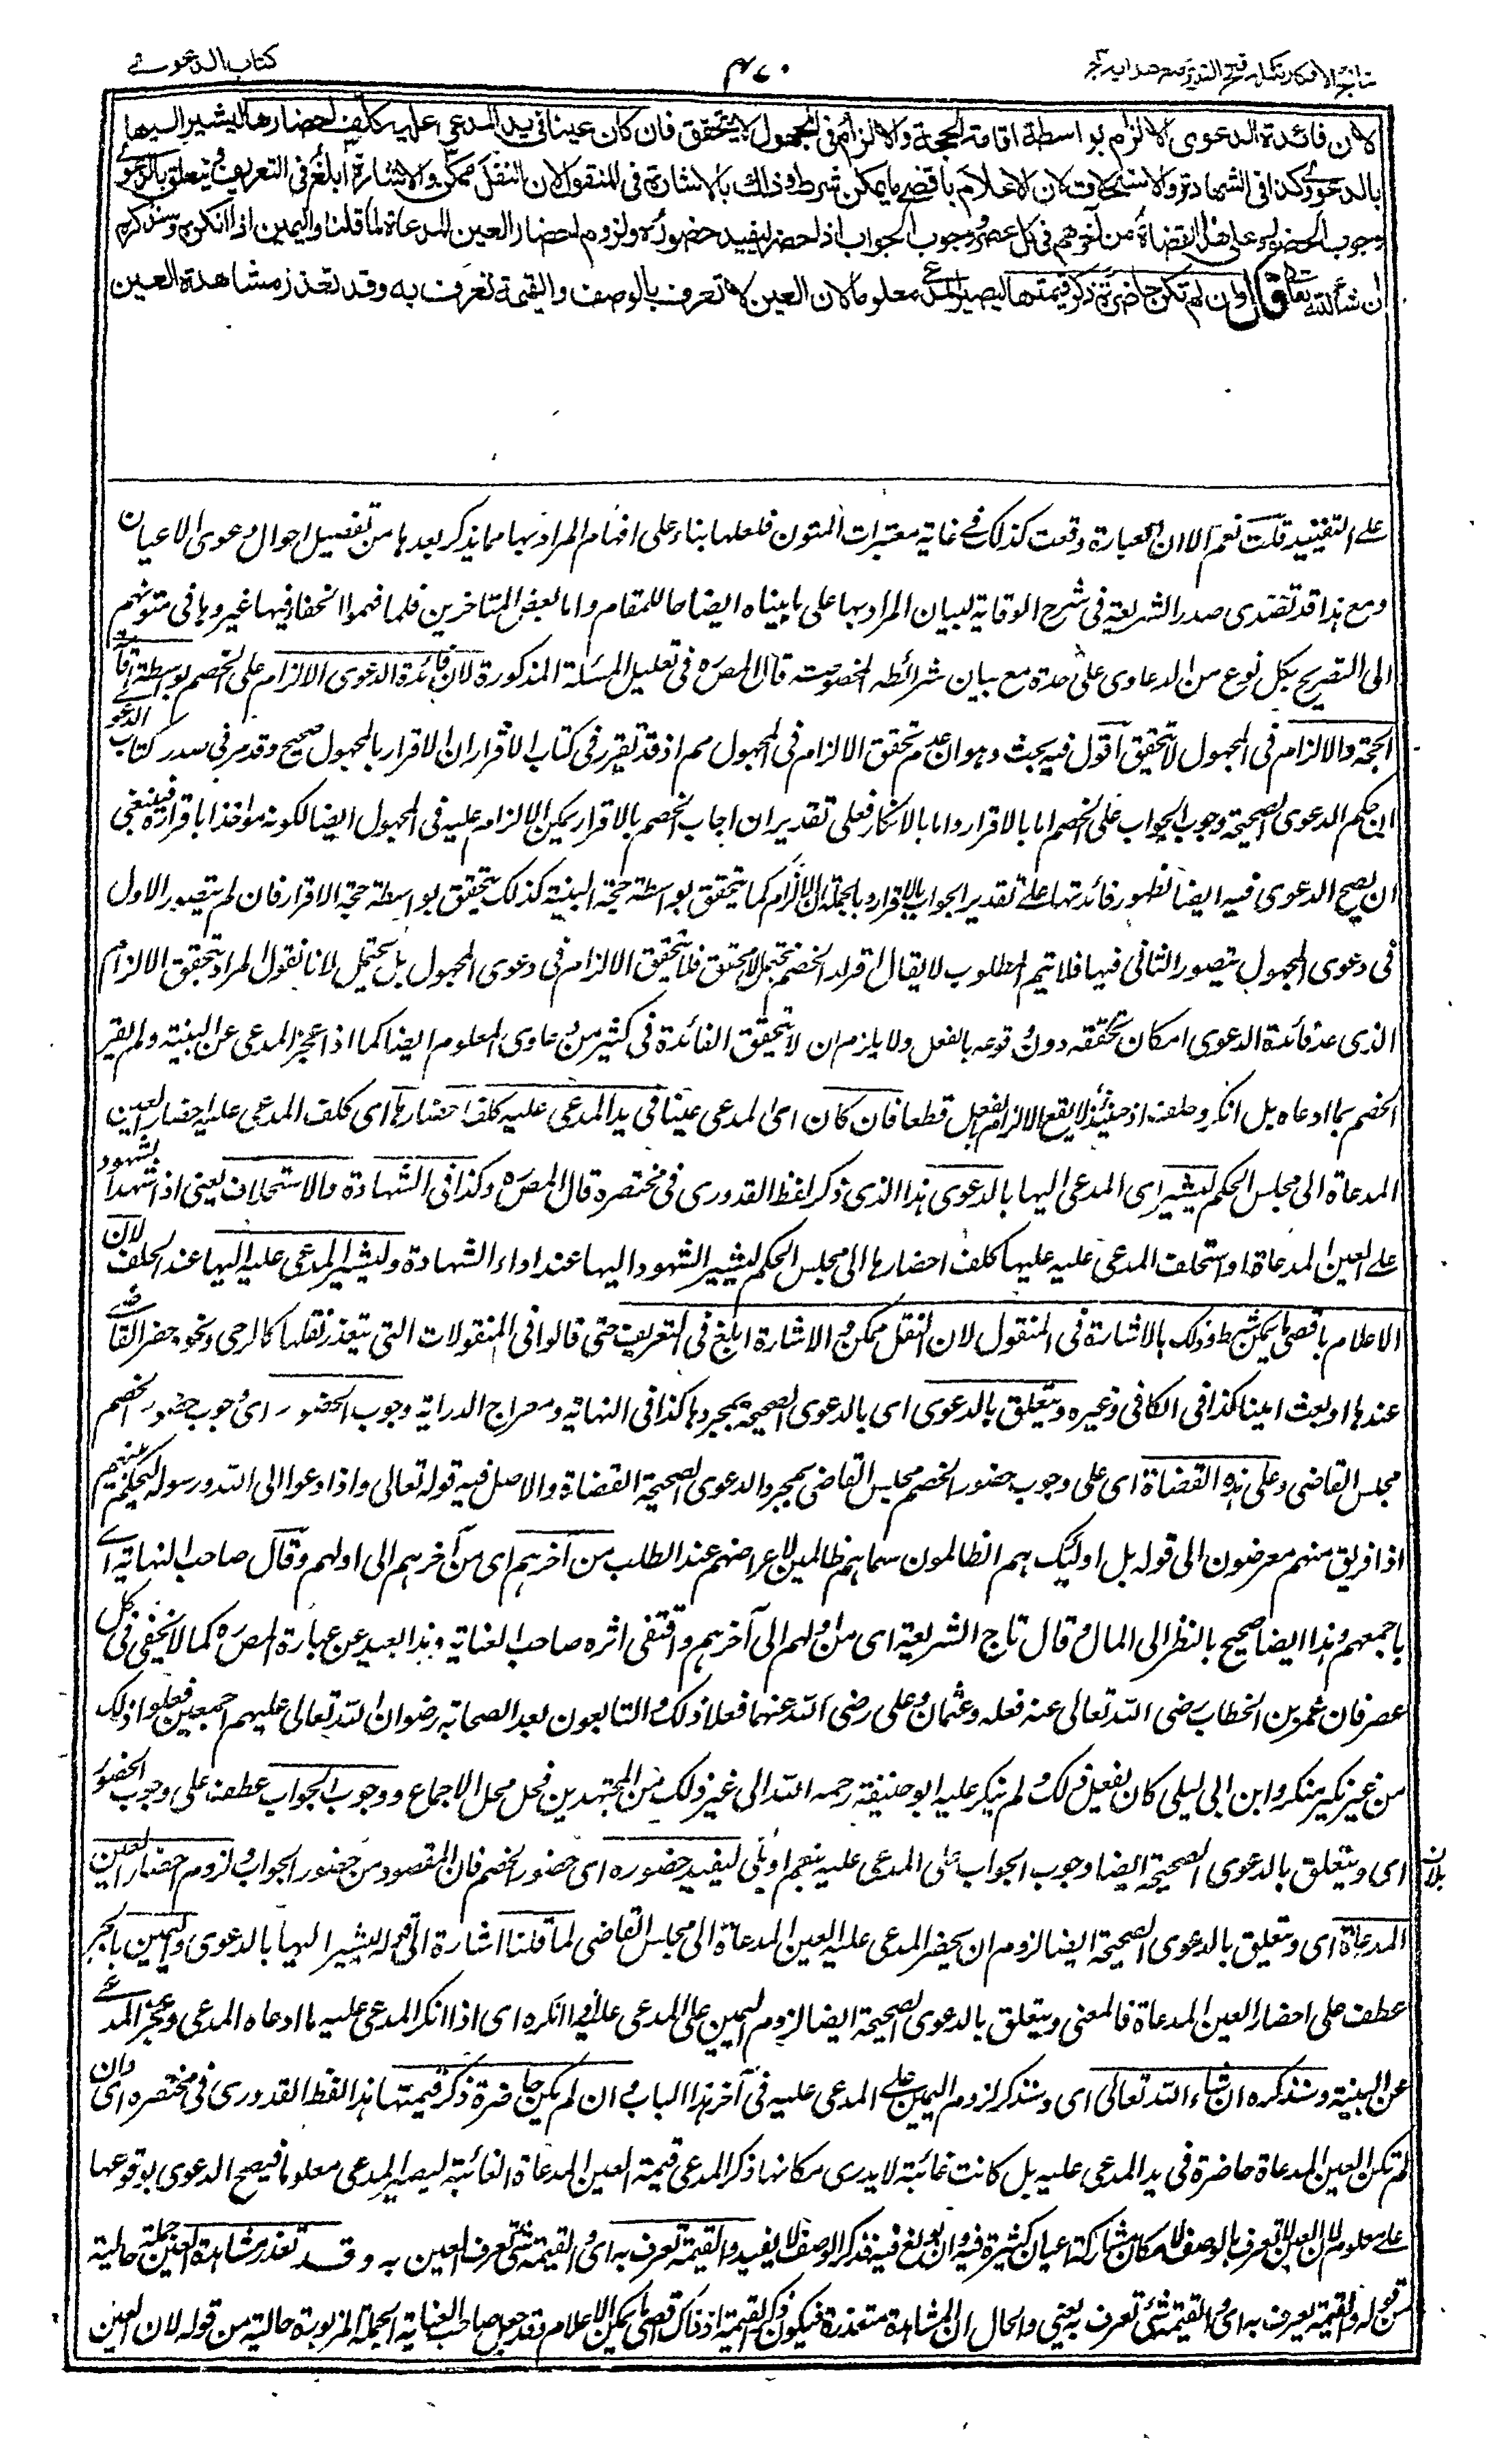 نتائج الافكار تكملة فتح القدير مع هدايه ج
٤٧٠
كتاب الدعوى
لان فائدة الدعوى الالزام بواسطة اقامة الحجة والالزام فى المجهول لا يتحقق فان كان عينا فى يد المدعى عليه كلف احضارها ليشير اليها
بالدعوى وكذا فى الشهادة والاستحلاف لان الاعلام باقصى ما يمكن شرط وذلك بالاشارة فى المنقول لان النقل ممكن والاشارة ابلغ فى التعريف ويتعلق بالدعوى
وجوب الحضور وعلى هذا القضاة من آخرهم فى كل عصر ووجوب الجواب اذا حضر ليفيد حضوره ولزوم احضار العين المدعاة لما قلنا واليمين اذا انكره وسنذكره
ان شاء الله تعالى قال وان لم تكن حاضرة ذكر قيمتها ليصير المدعى معلوما لان العين لا تعرف بالوصف والقيمة تعرف به وقد تعذر مشاهدة العين
على التفنيد قلت نعم الا ان العبارة وقعت كذلك فى غاية معتبرات المتون فلعلها بناء على افهام المراد بها مما يذكر بعدها من تفصيل احوال دعوى الاعيان
ومع هذا قد تصدى صدر الشريعة فى شرح الوقاية لبيان المراد بها على ما بيناه ايضاحا للمقام واما بعض المتاخرين فلما فهموا الخفاء فيها غيروها فى متونهم
الى التصريح بكل نوع من الدعاوى على حدة مع بيان شرائطه المخصوصة قال المص ره فى تعليل المسئلة المذكورة لان فائدة الدعوى الالزام على الخصم بواسطة اقامة
الحجة والالزام فى المجهول لا يتحقق اقول فيه بحث وهو ان عدم تحقق الالزام فى المجهول مم اذ قد تقرر فى كتاب الاقرار ان الاقرار بالمجهول صحيح وقد مر فى صدر كتاب الدعوى
ان حكم الدعوى الصحيحة وجوب الجواب على الخصم اما بالاقرار واما بالانكار فعلى تقدير ان اجاب الخصم بالاقرار يمكن الالزام عليه فى المجهول ايضا لكونه مواخذا باقراره فينبغى
ان يصح الدعوى فيه ايضا لظهور فائدتها على تقدير الجواب بالاقرار وبالجملة ان الالزام كما يتحقق بواسطة حجة البينة كذلك يتحقق بواسطة حجة الاقرار فان لم يتصور الاول
فى دعوى المجهول يتصور الثانى فيها فلا يتم المطلوب لا يقال اقرار الخصم محتمل لا محقق فلا يتحقق الالزام فى دعوى المجهول بل يحتمل لانا نقول المراد بتحقق الالزام
الذى عد فائدة الدعوى امكان تحققه دون وقوعه بالفعل ولا يلزم ان لا يتحقق الفائدة فى كثير من دعاوى المعلوم ايضا كما اذا عجز المدعى عن البينة ولم يقر
الخصم بما ادعاه بل انكر وحلف اذ حينئذ لا يقع الالزام بالفعل قطعا فان كان اى المدعى عينا فى يد المدعى عليه كلف احضارها اى كلف المدعى عليه احضار العين
المدعاة الى مجلس الحكم ليشير اى المدعى اليها بالدعوى هذا الذى ذكر لفظ القدورى فى مختصره قال المص ره وكذا فى الشهادة والاستحلاف يعنى اذا شهد الشهود
على العين المدعاة او استحلف المدعى عليه عليها كلف احضارها الى مجلس الحكم ليشير الشهود اليها عند اداء الشهادة وليشير المدعى عليه اليها عند الحلف لان
الاعلام باقصى ما يمكن شرط وذلك بالاشارة فى المنقول لان النقل ممكن والاشارة ابلغ فى التعريف حتى قالوا فى المنقولات التى يتعذر نقلها كالرحى ونحوه حضر القاضى
عندها او بعث امينا كذا فى الكافى وغيره ويتعلق بالدعوى اى بالدعوى الصحيحة بمجردها كذا فى النهاية ومعراج الدراية وجوب الحضور اى وجوب حضور الخصم
مجلس القاضى وعلى هذا القضاة اى على وجوب حضور الخصم مجلس القاضى بمجرد الدعوى الصحيحة القضاة والاصل فيه قوله تعالى واذا دعوا الى الله ورسوله ليحكم بينهم
اذا فريق منهم معرضون الى قوله بل اولئك هم الظالمون سماهم ظالمين لاعراضهم عند الطلب من آخرهم اى من آخرهم الى اولهم وقال صاحب النهاية اى
باجمعهم وهذا ايضا صحيح بالنظر الى المال وقال تاج الشريعة اى من اولهم الى آخرهم واقتفى اثره صاحب العناية وهذا بعيد عن عبارة المص ره كما لا يخفى فى كل
عصر فان عمر بن الخطاب رضى الله تعالى عنه فعله وعثمان وعلى رضى الله عنهما فعلا ذلك والتابعون بعد الصحابة رضوان الله تعالى عليهم اجمعين فعلوا ذلك
من غير نكير منكر وابن ابى ليلى كان يفعل ذلك ولم ينكر عليه ابو حنيفة رحمه الله الى غير ذلك من المجتهدين فحل محل الاجماع ووجوب الجواب عطف على وجوب الحضور
اى ويتعلق بالدعوى الصحيحة ايضا وجوب الجواب على المدعى عليه بنعم او بلا ليفيد حضوره اى حضور الخصم فان المقصود من حضور الجواب ولزوم احضار العين
المدعاة اى ويتعلق بالدعوى الصحيحة ايضا لزوم ان يحضر المدعى عليه العين المدعاة الى مجلس القاضى لما قلنا اشارة الى قوله ليشير اليها بالدعوى واليمين بالجر
عطف على احضار العين المدعاة فالمعنى ويتعلق بالدعوى الصحيحة ايضا لزوم اليمين على المدعى عليه اذا انكره اى اذا انكر المدعى عليه ما ادعاه المدعى وعجز المدعى
عن البينة وسنذكره ان شاء الله تعالى اى وسنذكر لزوم اليمين على المدعى عليه فى آخر هذا الباب وان لم يكن حاضرة ذكر قيمتها هذا لفظ القدورى فى مختصره اى وان
لم تكن العين المدعاة حاضرة فى يد المدعى عليه بل كانت غائبة لا يدرى مكانها ذكر المدعى قيمة العين المدعاة الغائبة ليصير المدعى معلوما فيصح الدعوى بوقوعها
على معلوم لان العين لا تعرف بالوصف لامكان مشاركة اعيان كثيرة فيه وان بولغ فيه فذكر الوصف لا يفيد والقيمة تعرف به اى والقيمة شئ تعرف العين به وقد تعذر مشاهدة العين جملة حالية
من قوله والقيمة يعرف به اى والقيمة شئ تعرف به يعنى والحال ان المشاهدة متعذرة فيكون ذكر القيمة اذ ذاك اقصى ما يمكن الاعلام وقد جعل صاحب العناية الجملة المزبورة حالية من قوله لان العين